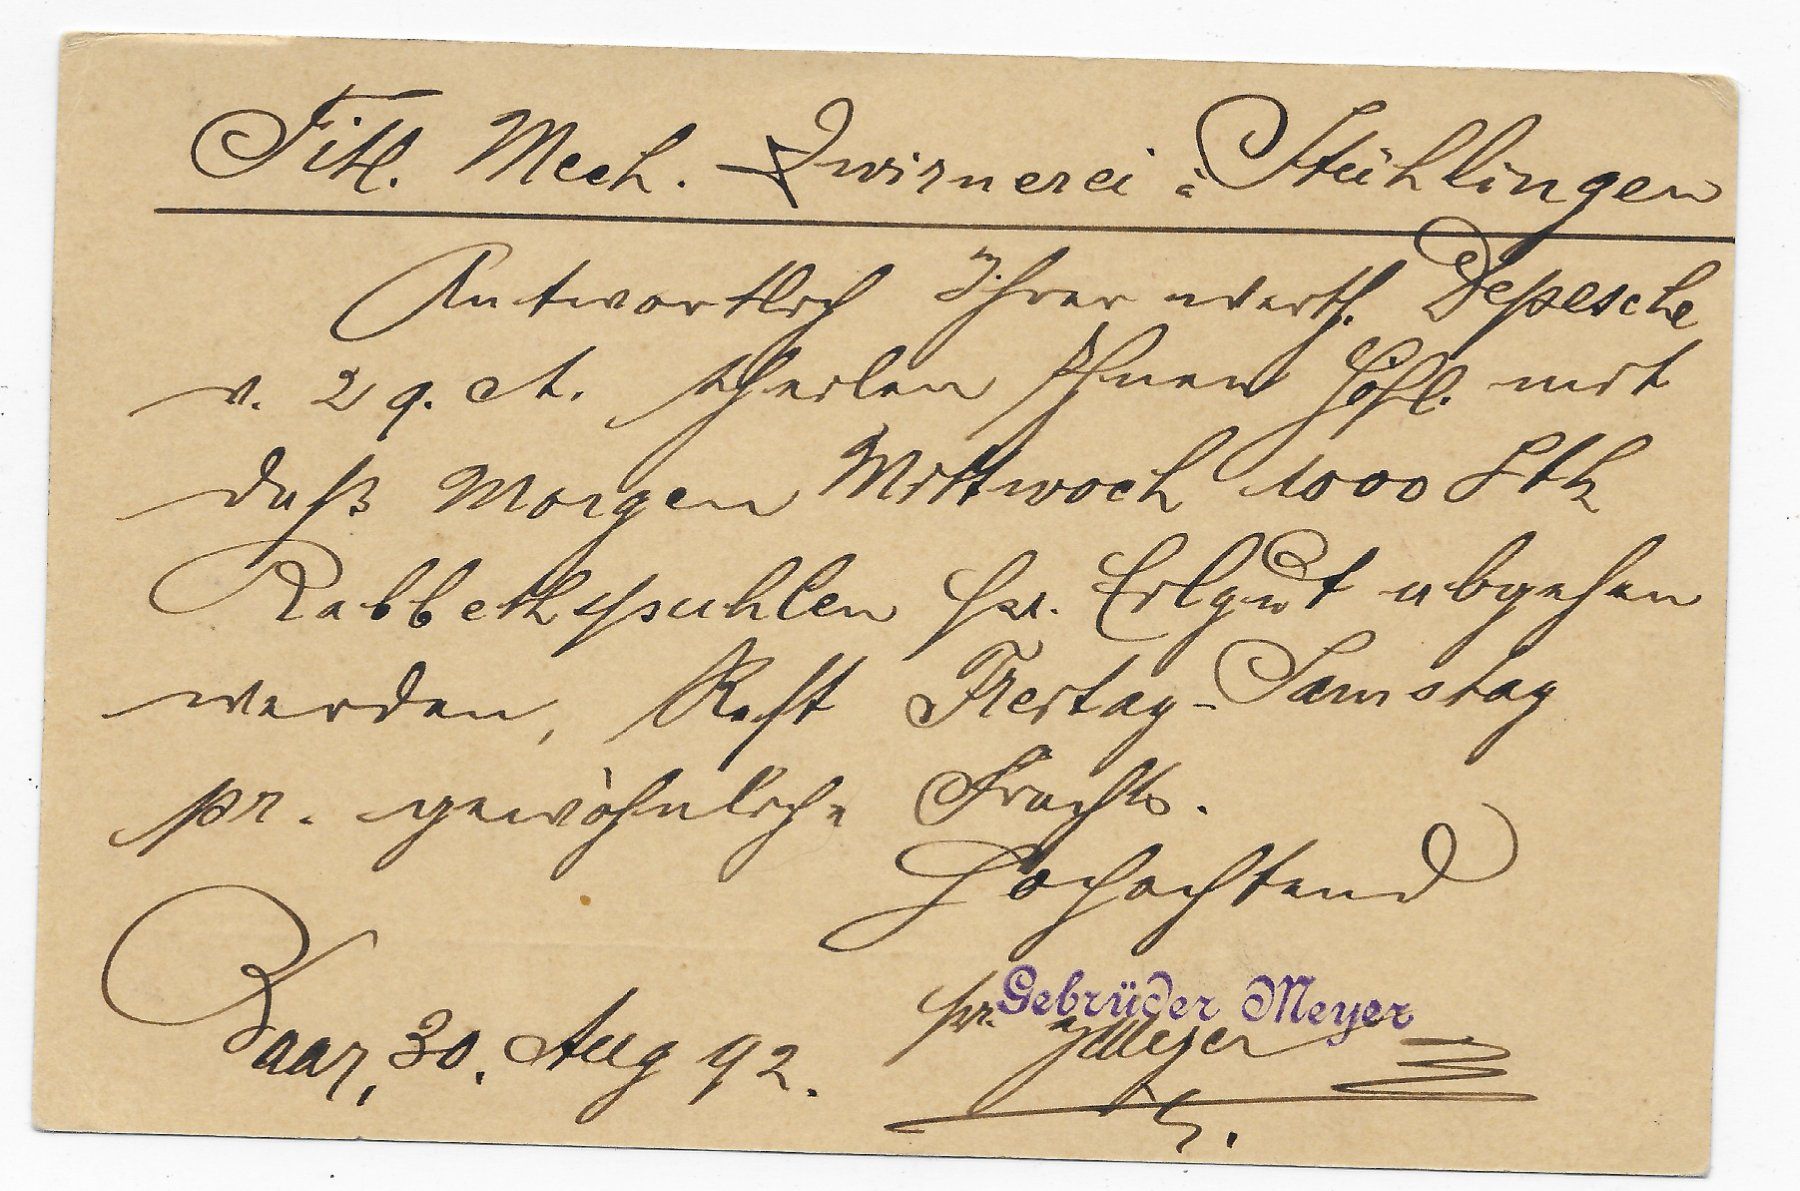 Titl. Mech. Zwirnerei i. Stühlingen
Antwortlich Ihrer werth. Depesche
v. 29. ct. theilen Ihnen höfl. mit
daß Morgen Mittwoch 1000 Stk
Rabbethspuhlen pr. Eilgut abgehen
werden, Rest Freitag-Samstag
pr. gewöhnliche Fracht.
Hochachtend
pr. Gebrüder Meyer
Meyer
Baar, 30. Aug 92.